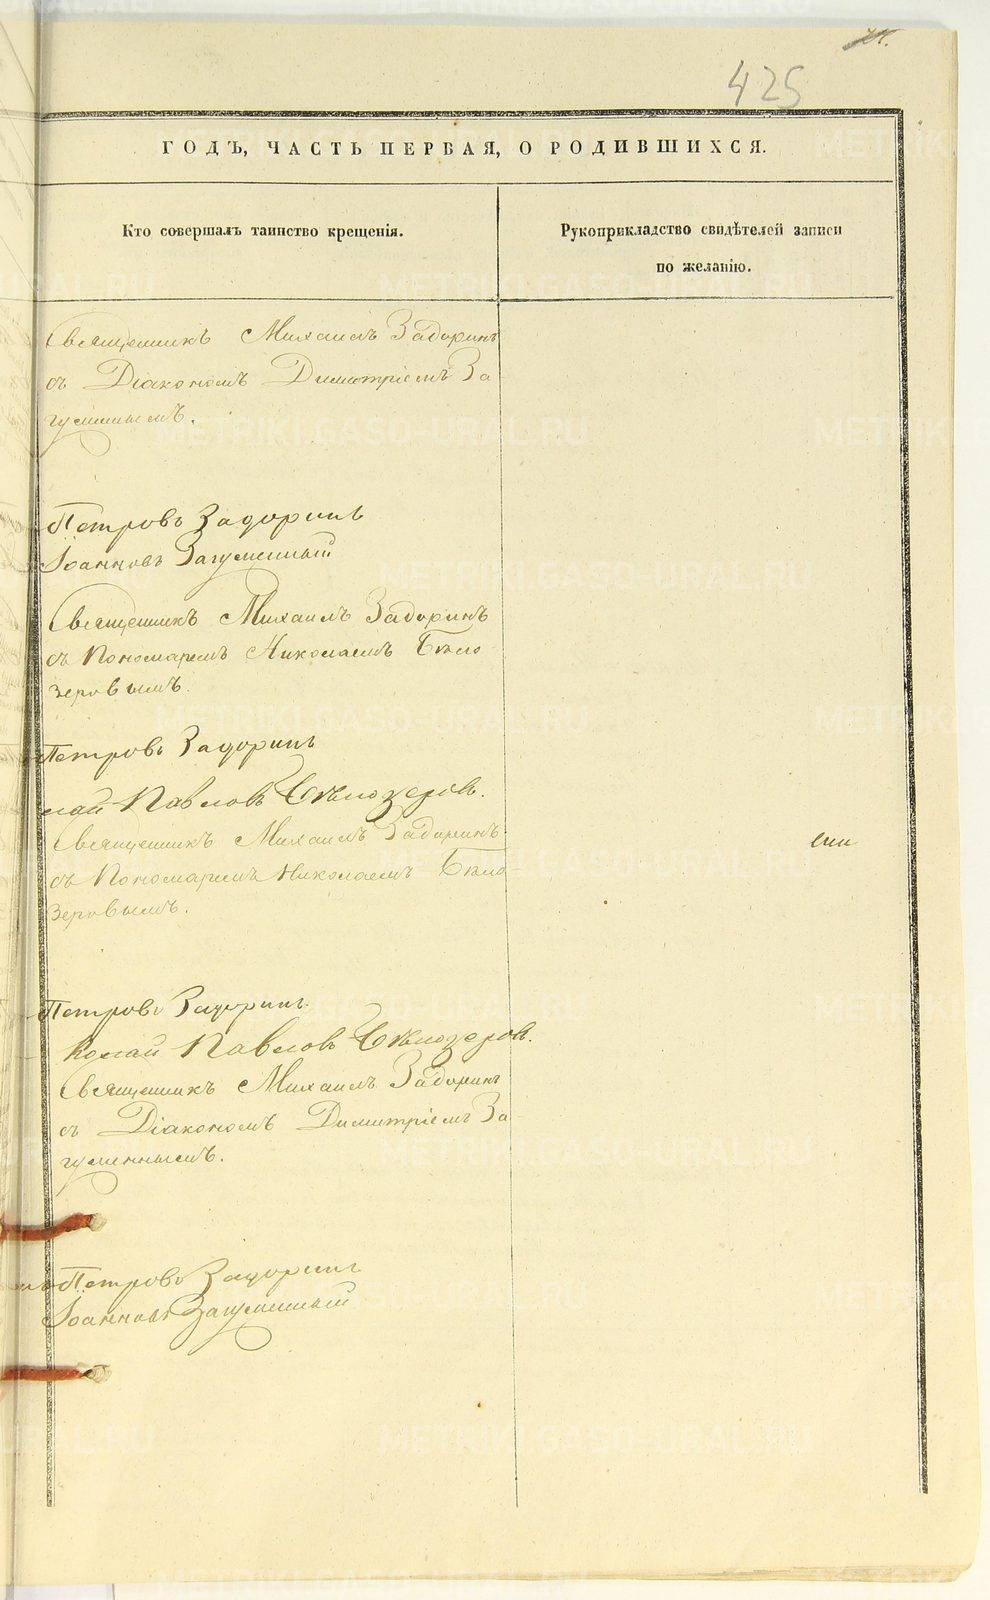 425
ГОДЪ, ЧАСТЬ ПЕРВАЯ, О РОДИВШИХСЯ.
Кто совершалъ таинство крещенія.
Рукоприкладство свидѣтелей записи
по желанію.
Священникъ Михаилъ Задоринъ
съ Діакономъ Димитріемъ За
гуменнымъ.
Петровъ Задоринъ
Іоанновъ Загуменный
Священникъ Михаилъ Задоринъ
съ Пономаремъ Николаемъ Бѣло
зеровымъ.
Петровъ Задоринъ
лай Павловъ Бѣлозеровъ.
Священникъ Михаилъ Задоринъ
съ Пономаремъ Николаемъ Бѣло
зеровымъ.
Петровъ Задоринъ
колай Павловъ Бѣлозеровъ.
Священникъ Михаилъ Задоринъ
съ Діакономъ Димитріемъ За
гуменнымъ.
Петровъ Задоринъ
Іоанновъ Загуменный
METRIKI.GASO-URAL.RU